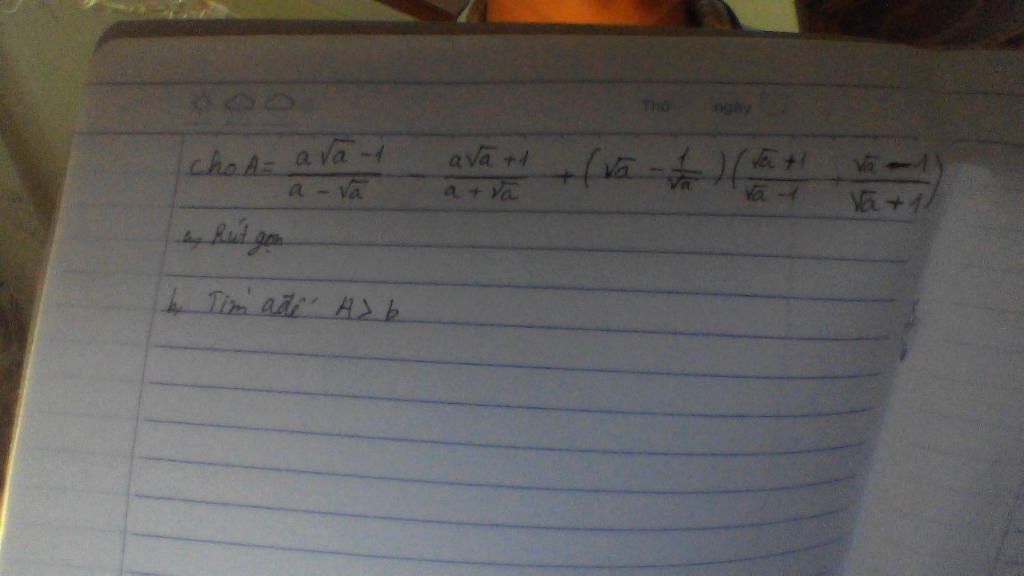 Thứ ngày
cho A = \frac{a\sqrt{a} - 1}{a - \sqrt{a}} - \frac{a\sqrt{a} + 1}{a + \sqrt{a}} + (\sqrt{a} - \frac{1}{\sqrt{a}})(\frac{\sqrt{a} + 1}{\sqrt{a} - 1} + \frac{\sqrt{a} - 1}{\sqrt{a} + 1})
a, Rút gọn
b, Tìm a để A > b